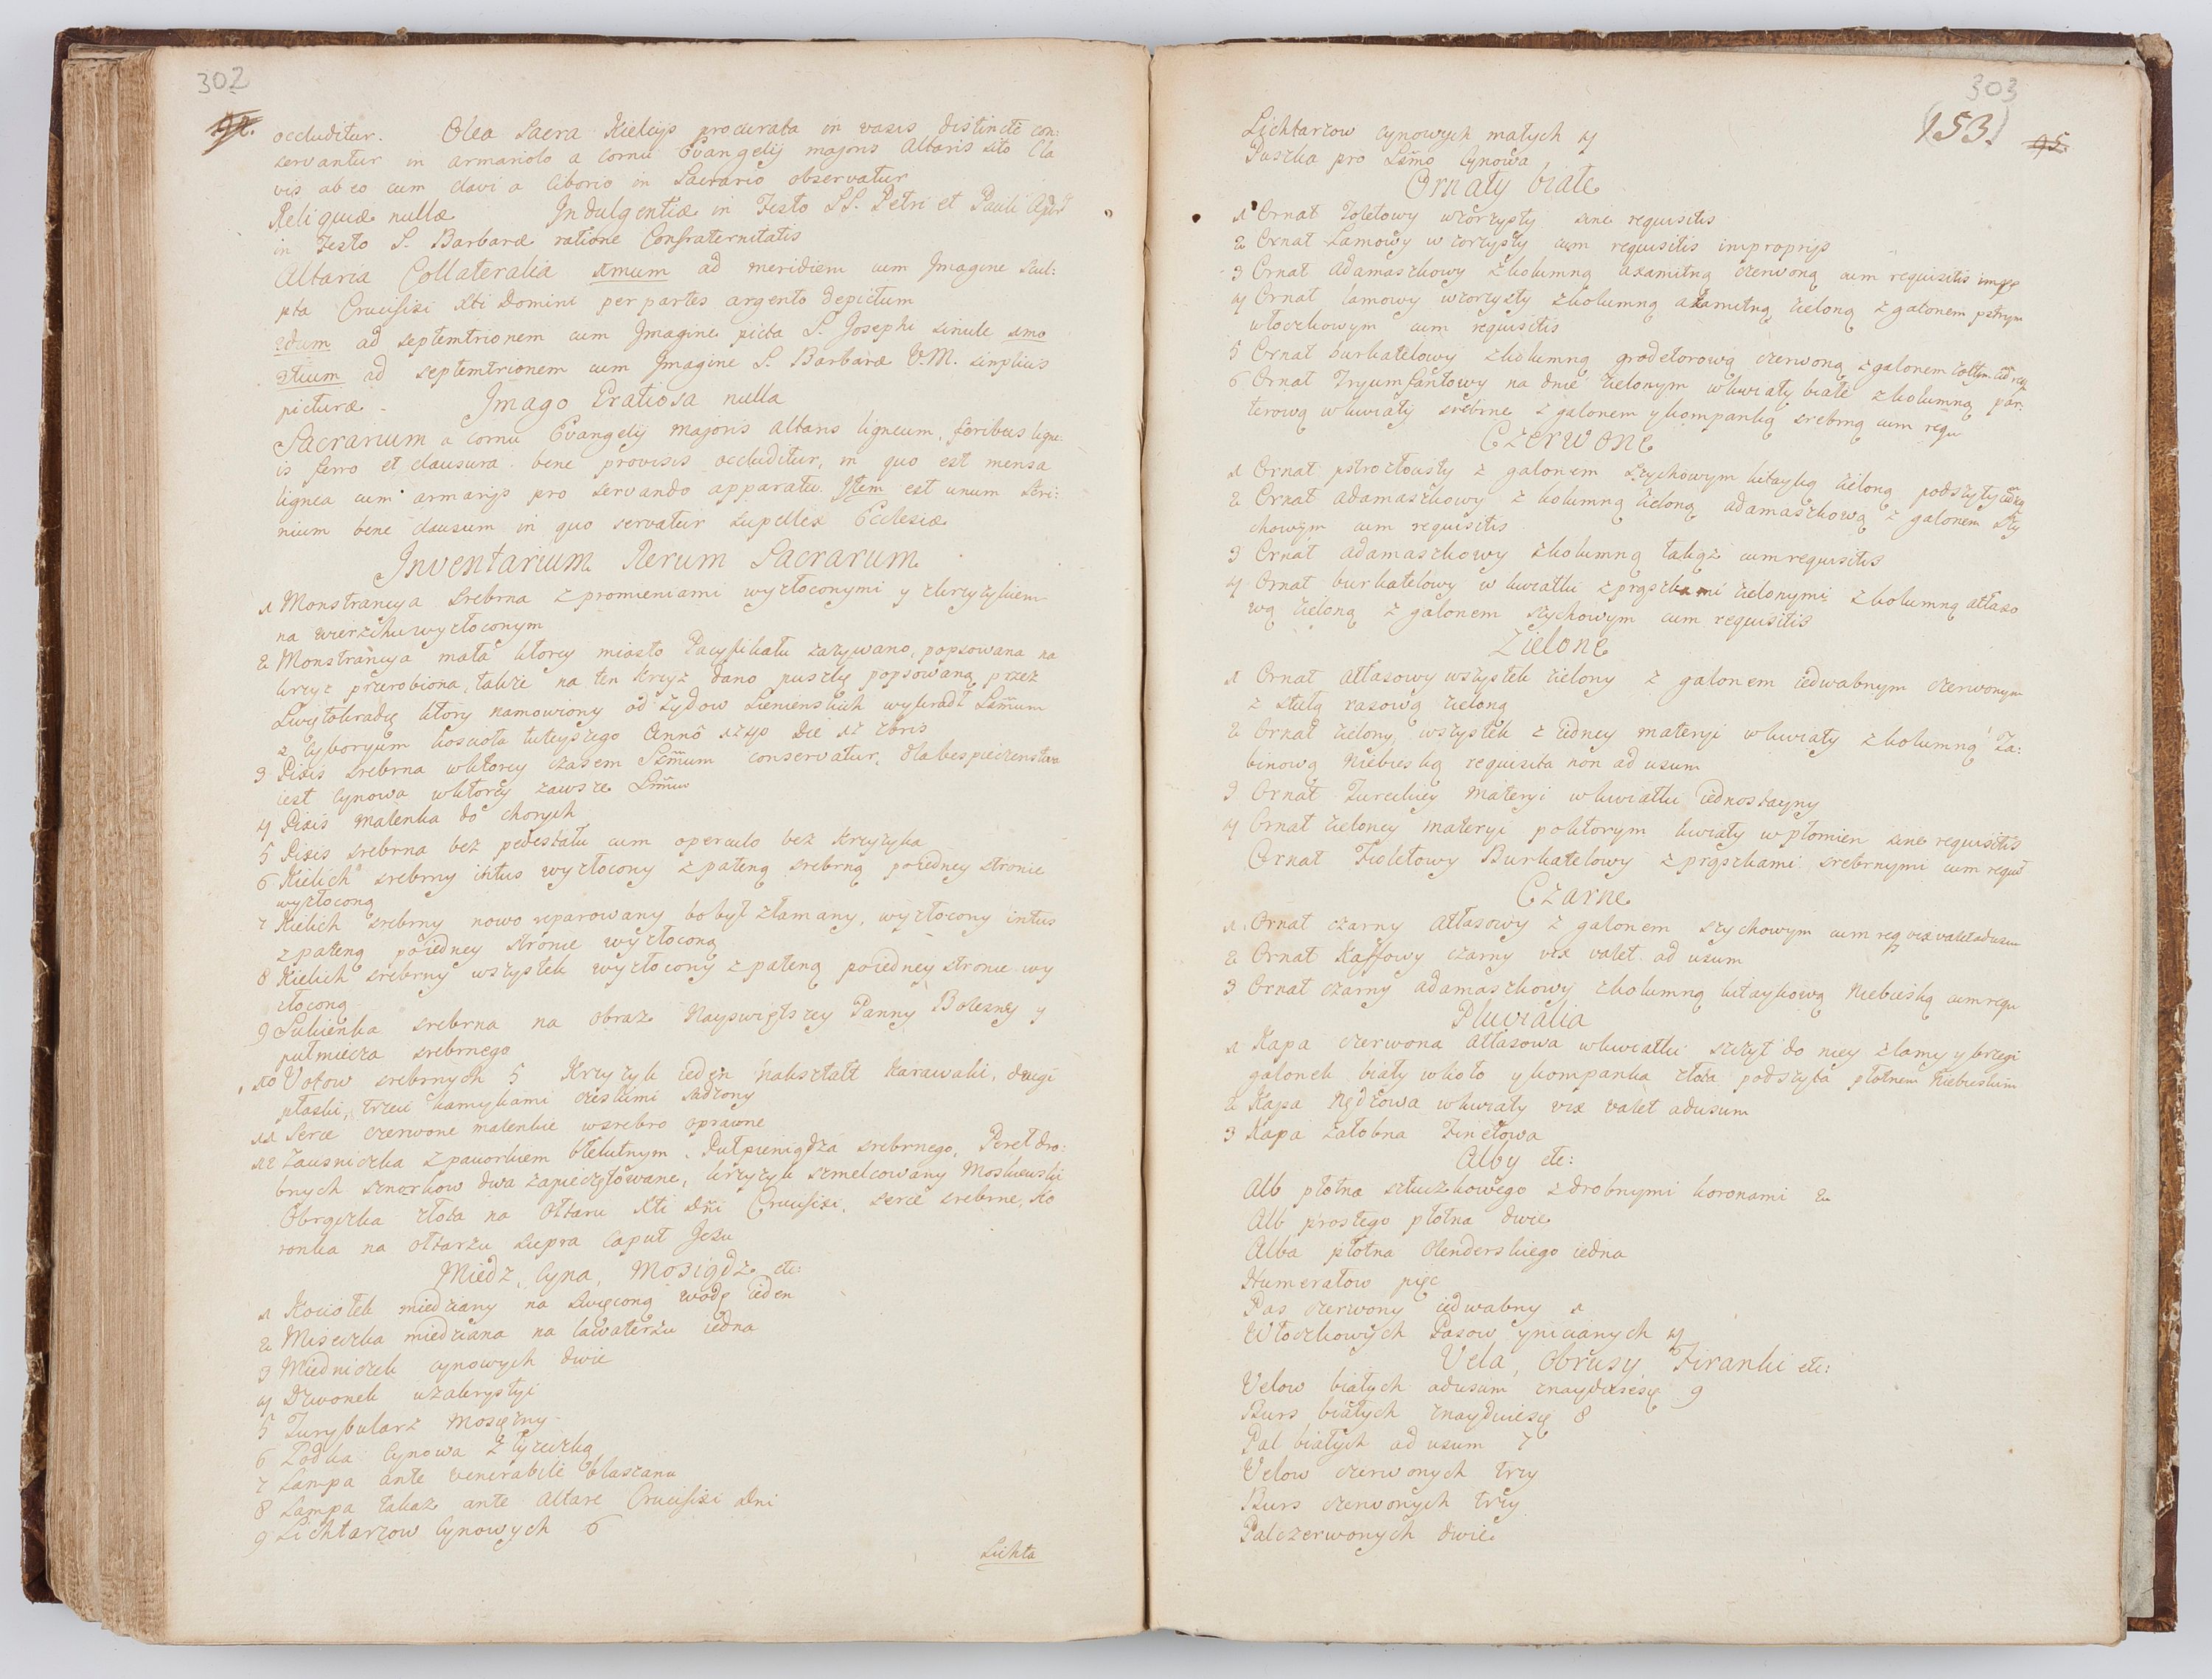 302
92.
occluditur. Olea Sacra Kielcijs procurata in vasis distincte con:
servantur in armariolo a cornu Evangelij majoris Altaris sito Cla
vis ab eo cum clavi a Ciborio in Sacrario observatur
Reliquiæ nullæ Indulgentiæ in Festo SS. Petri et Pauli
in Festo S. Barbaræ ratione Confraternitatis
Altaria Collateralia 1mum ad meridiem cum Imagine Scul:
pta Crucifixi Xti Domini per partes argento depictum
2dum ad septemtrionem cum Imagine picta S. Josephi simile 1mo
3tium ad septemtrionem cum Imagine S. Barbaræ V.M. simplicis
picturæ. Imago Gratiosa nulla
Sacrarium a cornu Evangelij majoris altaris ligneum, foribus ligne:
is ferro et clausura bene provisis occluditur, in quo est mensa
lignea cum armarijs pro servando apparatu. Item est unum scri:
nium bene clausum in quo servatur supellex Ecclesiæ
Inventarium Rerum Sacrarum
1 Monstrancya srebrna z promieniami wyzłoconymi y zkrzyzykiem
na wierzchu wyzłoconym
2 Monstrancya mała ktorey miasto Pacyfikału zazywano, popsowana na
krzyz przerobiona, także na ten Krzyz dano puszkę popsowaną przez
Swiętokradcę ktory namowiony od Zydow Sienienskich wykradł Ssmum
z Cyboryum koscioła tuteyszego Anno 1740 Die 17 Xbris
3 Pixis srebrna wktorey czasem Ssmum conservatur, dla bespieczenstwa
iest Cynowa wktorey zawsze Ssmus
4 Pixis malenka do chorych
5 Pixis srebrna bez pedestału cum operculo bez Krzyzyka
6 Kielich srebrny intus wyzłocony z pateną srebrną poiedney stronie
wyzłoconą
7 Kielich srebrny nowo reparowany bo był złamany, wyzłocony intus
z pateną poiedney stronie wyzłoconą
8 Kielich srebrny wszystek wyzłocony z pateną poiedney stronie wy
złoconą
9 Sukienka srebrna na obraz Nayswiętszey Panny Bolesney y
puł miecza srebrnego
10 Votow srebrnych 5 Krzyzyk ieden nakształt Karawaki, drugi
płaski, trzeci kamykami czeskimi sadzony
11 Serce czerwone malenkie wsrebro oprawne
12 Zausniczka z pacorkiem błekitnym. Puł pieniądza srebrnego, Pereł dro:
bnych sznorkow dwa zapieczętowane, krzyzyk szmelcowany Moskiewski
Obrączka złota na Ołtaru Xti Dni Crucifixi, serce srebrne, Ko
ronka na ołtarzu supra Caput Jesu
Miedz, Cyna, Mosiądz etc:
1 Kociołek miedziany na swięconą wodę ieden
2 Miseczka miedziana na lawaterzu iedna
3 Miedniczek cynowych dwie
4 Dzwonek uzakrystyi
5 Turybularz Mosięzny
6 Łodka Cynowa z łyzeczką
7 Lampa ante Venerabile blaszana
8 Lampa takaz ante Altare Crucifixi Dni
9 Lichtarzow Cynowych 6
Lichta
303
(153.)
95.
Lichtarzow Cynowych małych 4
Puszka pro Ssmo Cynowa
Ornaty białe
1 Ornat Zoletowy wzorzysty sine requisitis
2 Ornat Lamowy wzorzysty cum requisitis improprijs
3 Ornat adamaszkowy zkolumną axamitną czerwoną cum requisitis impp
4 Ornat lamowy wzorzysty zkolumną axamitną zieloną z galonem pstrym
włoczkowym cum requisitis
5 Ornat burkatelowy zkolumną grodetorową czerwoną z galonem żołtym
6 Ornat Tryumfantowy na dnie zielonym wkwiaty białe zkolumną par:
terową wkwiaty srebrne z galonem ykompanką srebrną cum requ
Czerwone
1 Ornat pstrozłocisty z galonem szychowym kitayką zieloną podszyty
2 Ornat adamaszkowy z kolumną zieloną adamaszkową z galonem szy
chowym cum requisitis
3 Ornat adamaszkowy zkolumną takąz cum requisitis
4 Ornat burkatelowy w kwiatki z prąszkami zielonymi zkolumną atłaso
wą zieloną z galonem szychowym cum requisitis
Zielone
1 Ornat Atłasowy wszystek zielony z galonem iedwabnym czerwonym
z stułą rasową zieloną
2 Ornat zielony wszystek z iedney materyi wkwiaty zkolumną Ta:
binową Niebieską requisita non ad usum
3 Ornat Tureckiey Materyi wkwiatki iednostayny
4 Ornat zieloney materyi poktorym kwiaty wpłomien sine requisitis
Ornat Fioletowy Burkatelowy z prąszkami srebrnymi cum requi
Czarne
1 Ornat czarny Atłasowy z galonem szychowym cum req vix valet ad usum
2 Ornat Kaffowy czarny vix valet ad usum
3 Ornat czarny adamaszkowy zkolumną kitaykową Niebieską cum requ
Pluvialia
1 Kapa czerwona Atłasowa wkwiatki szczyt do niey zlamy y brzegi
galonek biały wkoło ykompanka złota podszyta płotnem Niebieskim
2 Kapa Nędzowa wkwiaty vix valet adusum
3 Kapa załobna Finetowa
Alby etc:
Alb płotna sztuczkowego zdrobnymi koronami 2
Alb prostego płotna dwie
Alba płotna Olenderskiego iedna
Humerałow pięc
Pas czerwony iedwabny 1
Włoczkowych Pasow ynicianych 4
Vela, Obrusy Firanki etc:
Velow białych adusum znayduiesię 9
Burs białych znayduiesię 8
Pal białych ad usum 7
Velow czerwonych trzy
Burs czerwonych trzy
Pal czerwonych dwie